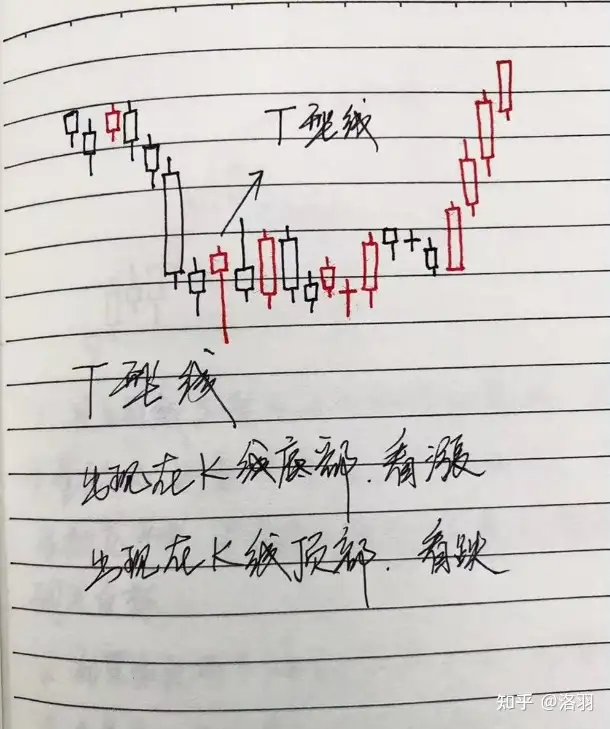 T型线
T型线
出现在K线底部.看涨
出现在K线顶部.看跌
知乎 @洛羽